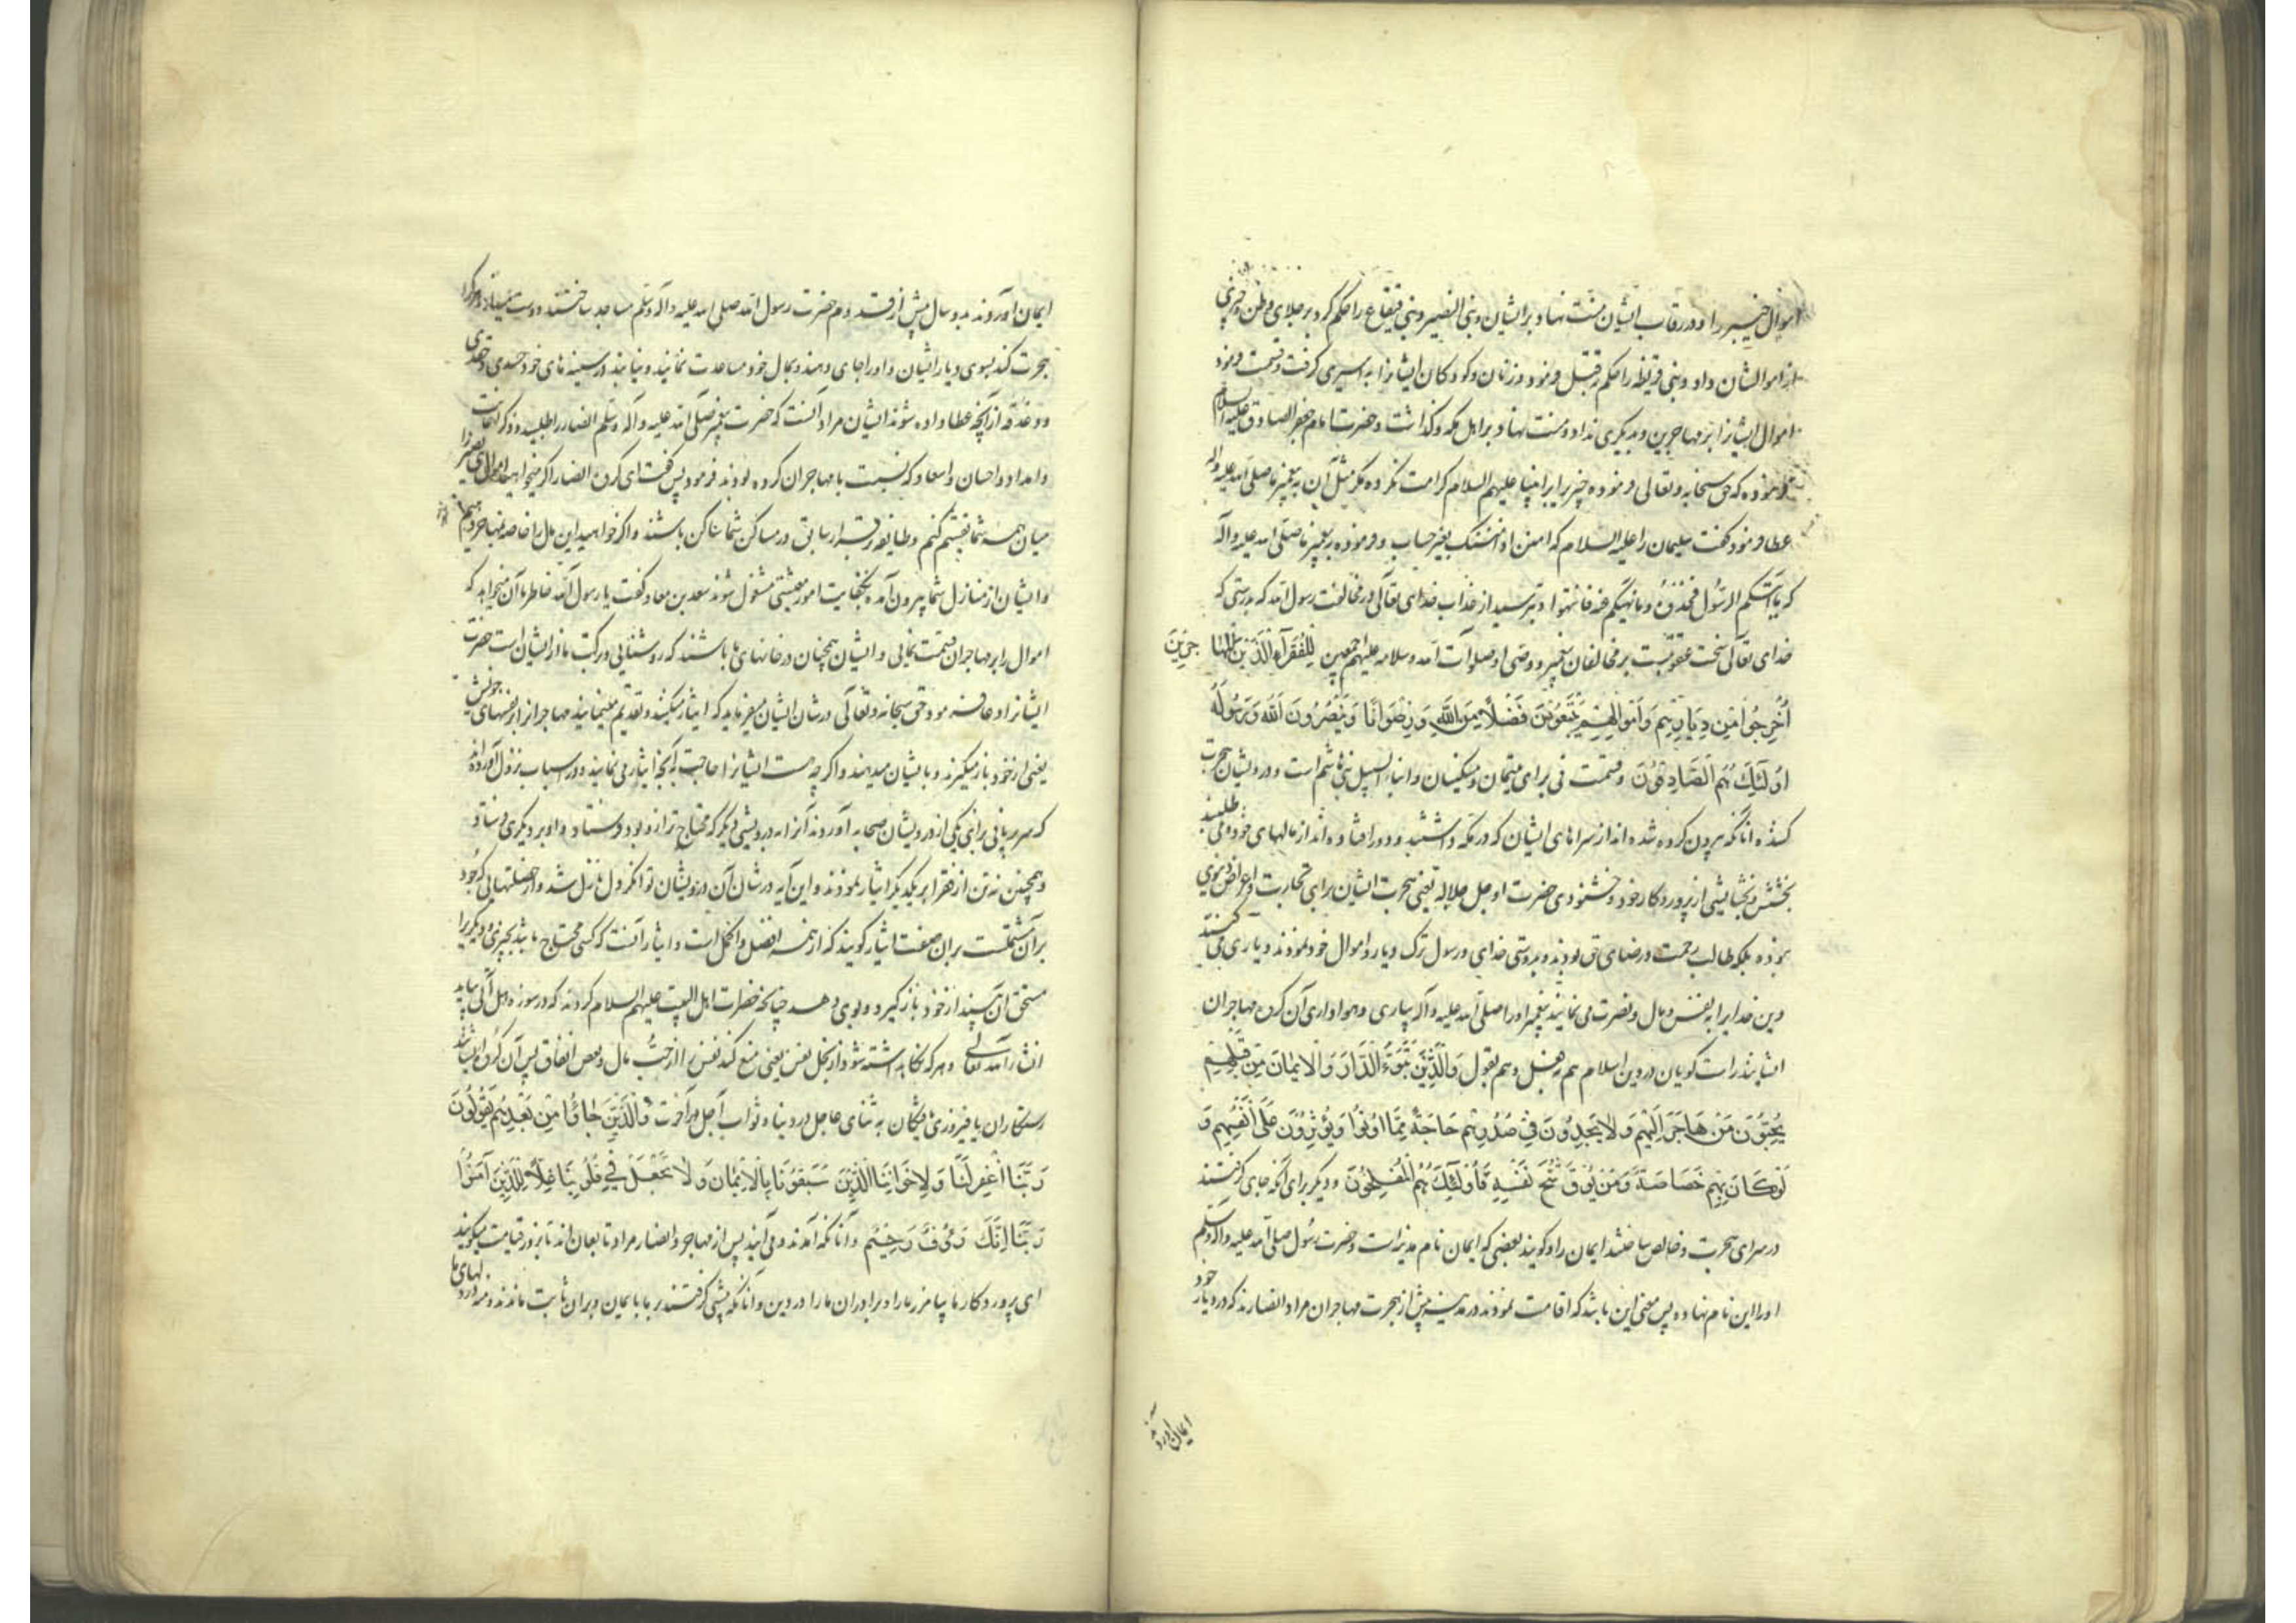 اموال خیبر را و در رقاب ایشان منت نهاد بر ایشان و بنی النضیر و بنی قینقاع را حکم کرد بر جلای وطن و چیزی
از اموالشان داد و بنی قریظه را حکم بر قتل فرمود و زنان و کودکان ایشانرا به اسیری گرفت و قسمت فرمود
اموال ایشانرا بر مهاجرین و بدیگری نداد و منت نهاد بر اهل مکه و گذاشت و حضرت امام جعفر الصادق علیه السلام
فرموده که حق سبحانه و تعالی فرموده چیزی را بر انبیا علیهم السلام کرامت نکرده مگر مثل آن به پیغمبر ما صلی الله علیه و اله
عطا فرمود گفت سلیمان را علیه السلام که امنن او امسک بغیر حساب و فرموده پیغمبر ما صلی الله علیه و اله
که ما آتیکم الرسول فخذوه و ما نهیکم عنه فانتهوا و بترسید از عذاب خدای تعالی در مخالفت رسول الله که بدرستی که
خدای تعالی سخت عقوبتست بر مخالفان پیغمبر و وصی او صلوات الله و سلامه علیهم اجمعین لِلْفُقَرَآءِ الَّذِینَ المُهاجِرِینَ
اُخْرِجُوا مِن دِیَارِهِم وَ اَموَالِهِم یَبْتَغُونَ فَضْلًا مِنَ اللهِ وَ رِضْوَانًا وَ یَنْصُرُونَ اللهَ وَ رَسُولَهُ
اُولٰئِکَ هُمُ الصَّادِقُونَ و قسمت فی برای یتیمان و مسکینان و ابناء السبیل بنی هاشم است و درویشان هجرت
کننده آنانکه بیرون کرده شده اند از سراهای ایشان که در مکه داشتند و دور افتاده اند از مالهای خود می طلبند
بخشش و بخشایشی از پروردگار خود و خشنودی حضرت او جل جلاله یعنی هجرت ایشان برای تجارت و اغراض دنیوی
نبوده بلکه طالب رحمت و رضای حق بودند و بدوستی خدای و رسول ترک دیار و اموال خود نمودند و یاری می کنند
دین خدایرا به نفس و مال و نصرت می نمایند پیغمبر او را صلی الله علیه و آله بیاری و هواداری آن گروه مهاجران
ایشانند راست گویان در دین اسلام هم بفعل و هم بقول وَ الَّذِینَ تَبَوَّءُ الدَّارَ وَ الاِیمَانَ مِن قَبْلِهِم
یُحِبُّونَ مَنْ هَاجَرَ اِلَیْهِم وَ لَا یَجِدُونَ فِی صُدُورِهِم حَاجَةً مِمَّا اُوتُوا وَ یُؤْثِرُونَ عَلَی اَنْفُسِهِم وَ
لَوْ کَانَ بِهِم خَصَاصَةٌ وَ مَنْ یُوقَ شُحَّ نَفْسِهِ فَاُولٰئِکَ هُمُ الْمُفْلِحُونَ و دیگر برای آنکه جای گرفتند
در سرای هجرت و خالص ساختند ایمان را و گویند بعضی که ایمان نام مدینه است و حضرت رسول صلی الله علیه و اله و سلم
او را این نام نهاده پس معنی این باشد که اقامت نمودند در مدینه پیش از هجرت مهاجران مراد انصارند که در دیار خود
ایمان آوردند
ایمان آوردند بدو سال پیش از قدوم حضرت رسول الله صلی الله علیه و اله و سلم مساجد ساختند دوست میدارند هر که را
هجرت کند بسوی دیار ایشان و او را جای دهند و بمال خود مساعدت نمایند و نیابند در سینه های خود حسدی و حقدی
و دغدغه از آنچه عطا داده شوند ایشان مراد آنست که حضرت پیغمبر صلی الله علیه و آله و سلم انصار را طلبید و ذکر اعانت
و امداد و احسان و اسعاد که نسبت با مهاجران کرده بودند فرمود پس گفت ای گروه انصار اگر میخواهید اموال بنی نضیر را
میان همه شما قسمت کنم و طایفه بقرار سابق در مساکن شما ساکن باشند و اگر خواهید این مال را خاصه بمهاجر دهم
و ایشان از منازل شما بیرون آمده بکفایت امور معیشتی مشغول شوند سعد بن معاذ گفت یا رسول الله خاطر ما آن میخواهد که
اموال را بر مهاجران قسمت نمائی و ایشان همچنان در خانهای ما باشند که روشنائی و برکت ما از ایشان است حضرت
ایشانرا دعا فرمود و حق سبحانه و تعالی در شان ایشان میفرماید که ایثار میکنند و تقدیم مینمایند مهاجرانرا بر نفسهای خویش
یعنی از خود باز میگیرند و با ایشان میدهند و اگر چه هست ایشانرا حاجت به آنچه ایثار می نمایند و در اسباب نزول آورده اند
که سر بریانی برای یکی از درویشان صحابه آوردند آنرا به درویشی دیگر که محتاج تر از او بود فرستاد و او بر دیگری فرستاد
و همچنین نه تن از فقرا بر یکدیگر ایثار نمودند و این آیه در شان آن درویشان توانگر دل نازل شد و از خصلتهایی که جود
بر آن مشتملست بر آن صفت ایثار گویند که از همه افضل و اکمل است و ایثار آنست که کسی محتاج باشد بچیزی و دیگریرا
مستحق آن بیند از خود باز گیرد و بوی دهد چنانچه حضرات اهل البیت علیهم السلام کردند که در سوره هل اتی بیاید
انشاء الله تعالی و هر که نگاه داشته شود از بخل نفس یعنی منع کند نفس را از حب مال و بغض انفاق پس آن گروه ایشانند
رستگاران یا فیروزی یافتگان به ثنای عاجل در دنیا و ثواب آجل در آخرت وَ الَّذِینَ جَاؤُا مِن بَعْدِهِم یَقُولُونَ
رَبَّنَا اغْفِرْ لَنَا وَ لِاِخْوَانِنَا الَّذِینَ سَبَقُونَا بِالاِیْمَانِ وَ لَا تَجْعَلْ فِی قُلُوبِنَا غِلًّا لِلَّذِینَ آمَنُوا
رَبَّنَا اِنَّکَ رَءُوفٌ رَحِیمٌ و آنانکه آمدند و می آیند پس از مهاجر و انصار مراد تابعان اند تا بروز قیامت میگویند
ای پروردگار ما بیامرز ما را و برادران ما را در دین و آنانکه پیشی گرفتند بر ما بایمان و بران ثابت ماندند و منه در دلهای ما